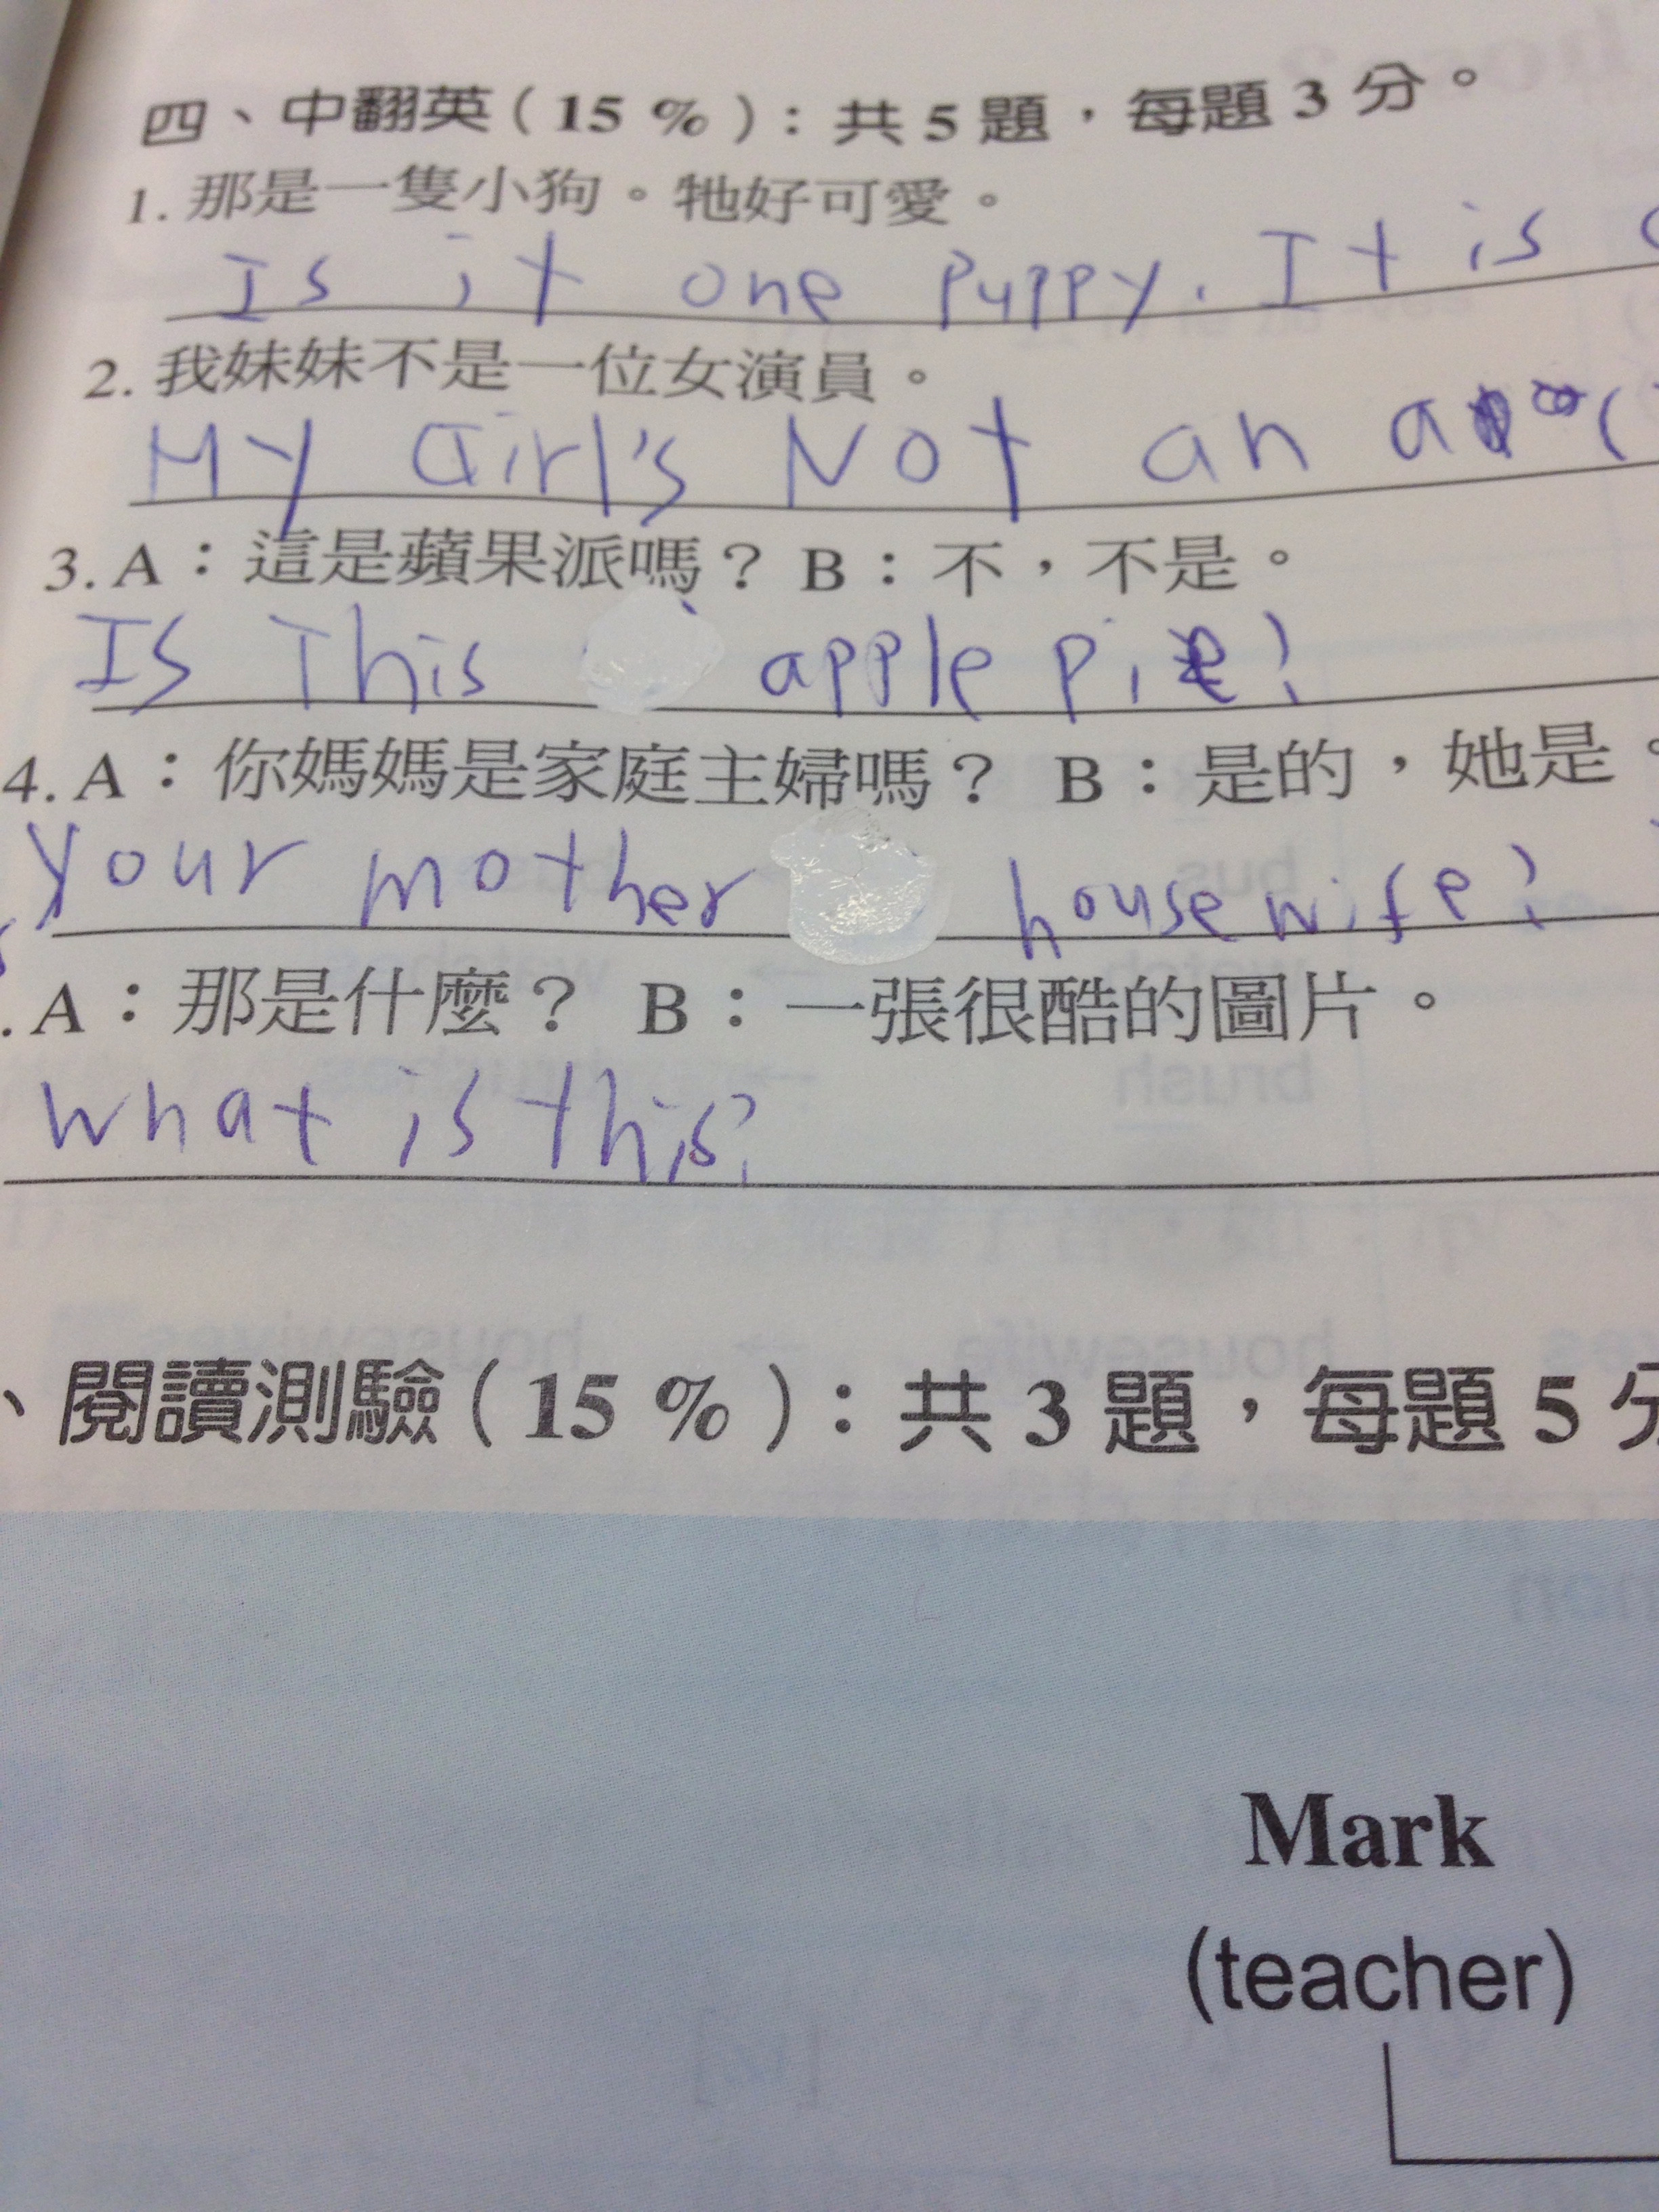 四、中翻英（15 %）：共 5 題，每題 3 分。
1. 那是一隻小狗。牠好可愛。
Is it one puppy. It is
2. 我妹妹不是一位女演員。
My Girl's Not an
3. A：這是蘋果派嗎？ B：不，不是。
Is This apple pie?
4. A：你媽媽是家庭主婦嗎？ B：是的，她是。
your mother housewife?
. A：那是什麼？ B：一張很酷的圖片。
What is this?
、閱讀測驗（15 %）：共 3 題，每題 5 分
Mark
(teacher)